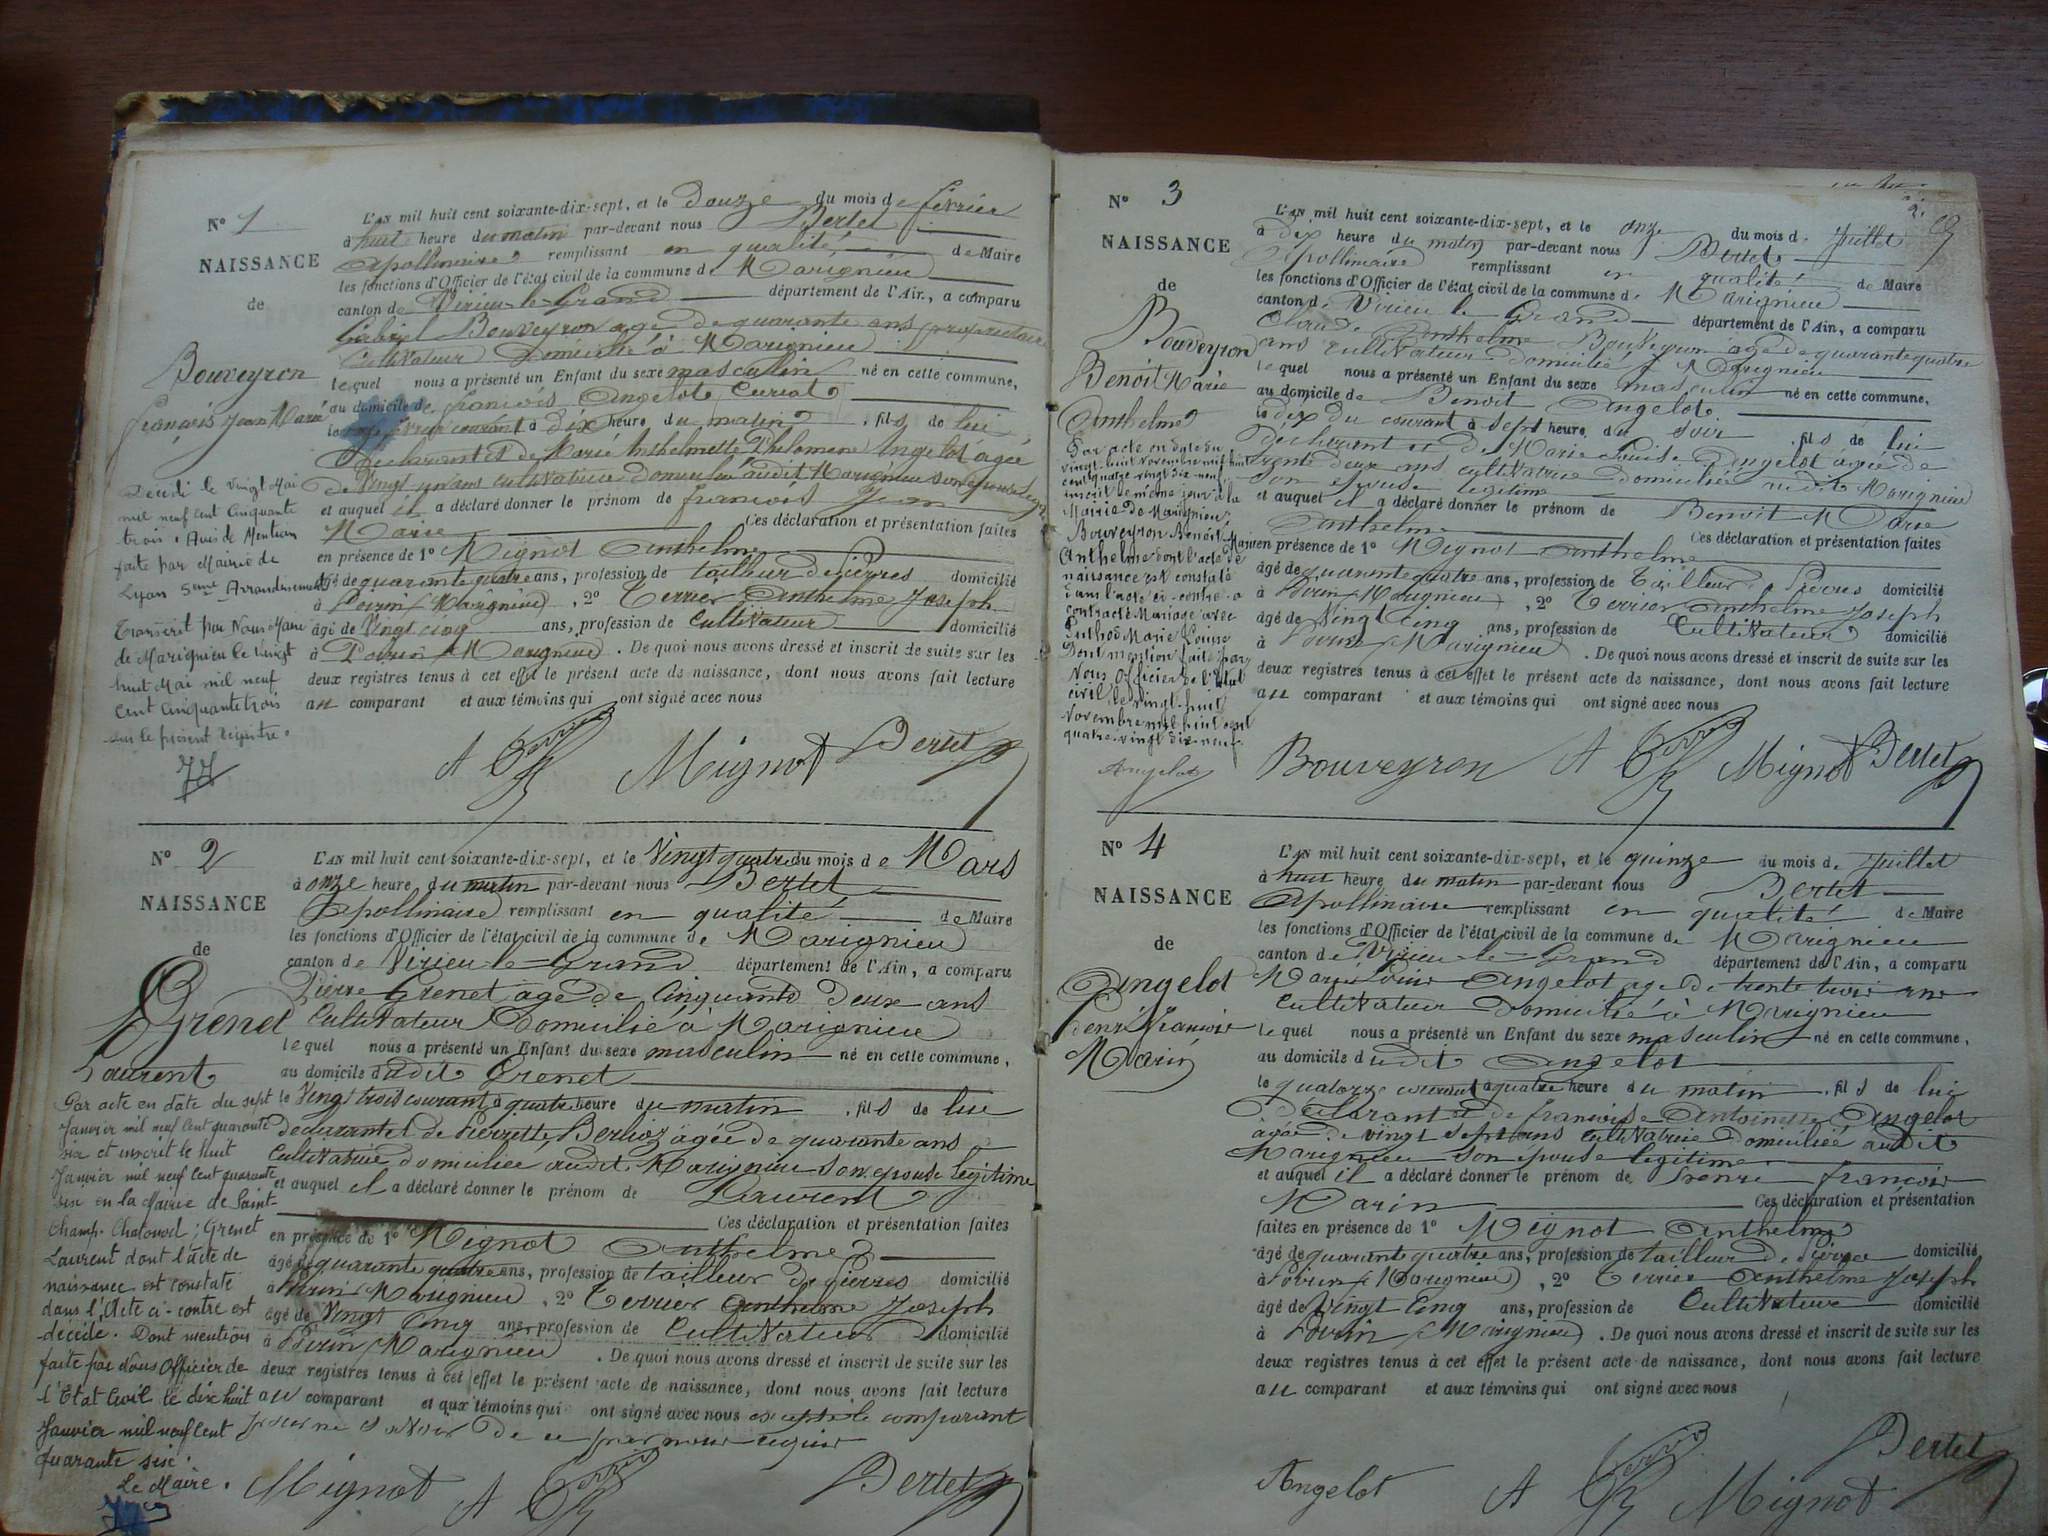 N° 1
NAISSANCE
de
Bouveyron
François Jean Marie
Décédé le vingt Mai
mil neuf cent cinquante
trois. Avis de Mention
faite par Mairie de
Lyon 5eme Arrondissement
Transcrit par Nous Maire
de Marignieu le vingt
huit Mai mil neuf
cent cinquante trois
sur le présent registre.
L'AN mil huit cent soixante-dix-sept, et le Douze du mois de février
à huit heure du matin par-devant nous Bertet
Apollinaire remplissant en qualité de Maire
les fonctions d'Officier de l'état civil de la commune de Marignieu
canton de Virieu-le-Grand département de l'Ain, a comparu
Gabriel Bouveyron agé de quarante ans propriétaire
Cultivateur Domicilié à Marignieu
lequel nous a présenté un Enfant du sexe masculin né en cette commune,
au domicile de françois Angelot Curiat
le courant à dix heure du matin, fils de lui
déclarant et de Marie Anthelmette Philomène Angelot âgée
de vingt un ans cultivatrice domiciliée audit Marignieu son épouse
et auquel il a déclaré donner le prénom de françois Jean
Marie Ces déclaration et présentation faites
en présence de 1° Mignot Anthelme
âgé de quarante quatre ans, profession de tailleur de pierres domicilié
à Poirin (Marignieu), 2° Terrier Anthelme Joseph
âgé de vingt cinq ans, profession de Cultivateur domicilié
à Poirin (Marignieu). De quoi nous avons dressé et inscrit de suite sur les
deux registres tenus à cet effet le présent acte de naissance, dont nous avons fait lecture
au comparant et aux témoins qui ont signé avec nous
A Terrier Mignot Bertet
N° 2
NAISSANCE
de
Grenet
Laurent
Par acte en date du sept
Janvier mil neuf cent quarante
six et inscrit le huit
Janvier mil neuf cent quarante
six en la Mairie de Saint-
Champ-Chatonod; Grenet
Laurent dont l'acte de
naissance est constaté
dans l'Acte ci-contre est
décédé. Dont mention
faite par Nous Officier de
l'Etat Civil le dix huit
Janvier mil neuf cent
quarante six.
Le Maire.
L'AN mil huit cent soixante-dix-sept, et le vingt quatre du mois de Mars
à onze heure du matin par-devant nous Bertet
Apollinaire remplissant en qualité de Maire
les fonctions d'Officier de l'état civil de la commune de Marignieu
canton de Virieu-le-Grand département de l'Ain, a comparu
Pierre Grenet agé de Cinquante deux ans
Cultivateur Domicilié à Marignieu
lequel nous a présenté un Enfant du sexe masculin né en cette commune,
au domicile dudit Grenet
le Vingt trois courant à quatre heure du matin, fils de lui
déclarant et de Pierrette Berlioz âgée de quarante ans
Cultivatrice domiciliée audit Marignieu son épouse légitime
et auquel il a déclaré donner le prénom de Laurent
Ces déclaration et présentation faites
en présence de 1° Mignot Anthelme
âgé de quarante quatre ans, profession de tailleur de pierres domicilié
à Poirin (Marignieu), 2° Terrier Anthelme Joseph
âgé de Vingt Cinq ans, profession de Cultivateur domicilié
à Poirin (Marignieu). De quoi nous avons dressé et inscrit de suite sur les
deux registres tenus à cet effet le présent acte de naissance, dont nous avons fait lecture
au comparant et aux témoins qui ont signé avec nous excepté le comparant
pour ne savoir de ce par nous requis
Mignot A Terrier Bertet
N° 3
NAISSANCE
de
Bouveyron
Benoit Marie
Anthelme
Par acte en date du
vingt huit Novembre mil huit
cent quatre vingt dix-neuf,
inscrit le même jour à la
Mairie de Marignieu,
Bouveyron Benoit-Marie
Anthelme dont l'acte de
naissance est constaté
dans l'acte ci-contre a
contracté Mariage avec
Marie Louise
Dont mention faite par
Nous Officier de l'Etat
civil le vingt-huit
Novembre mil huit cent
quatre-vingt dix-neuf.
L'AN mil huit cent soixante-dix-sept, et le onze du mois de Juillet
à dix heure du matin par-devant nous Bertet
Apollinaire remplissant en qualité de Maire
les fonctions d'Officier de l'état civil de la commune de Marignieu
canton de Virieu le Grand département de l'Ain, a comparu
Claude Anthelme Bouveyron agé de quarante quatre
ans cultivateur domicilié à Marignieu
lequel nous a présenté un Enfant du sexe masculin né en cette commune,
au domicile de Benoit Angelot
le dix du courant à sept heure du soir, fils de lui
déclarant et de Marie Louise Angelot âgée de
trente deux ans cultivatrice domiciliée audit Marignieu
son épouse légitime
et auquel il a déclaré donner le prénom de Benoit Marie
Anthelme Ces déclaration et présentation faites
en présence de 1° Mignot Anthelme
âgé de quarante quatre ans, profession de Tailleur de Pierres domicilié
à Poirin (Marignieu), 2° Terrier Anthelme Joseph
âgé de Vingt Cinq ans, profession de Cultivateur domicilié
à Poirin (Marignieu). De quoi nous avons dressé et inscrit de suite sur les
deux registres tenus à cet effet le présent acte de naissance, dont nous avons fait lecture
au comparant et aux témoins qui ont signé avec nous
Angelot Bouveyron A Terrier Mignot Bertet
N° 4
NAISSANCE
de
Angelot
Henri François
Marin
L'AN mil huit cent soixante-dix-sept, et le quinze du mois de Juillet
à huit heure du matin par-devant nous Bertet
Apollinaire remplissant en qualité de Maire
les fonctions d'Officier de l'état civil de la commune de Marignieu
canton de Virieu-le-Grand département de l'Ain, a comparu
Marie Louis Angelot agé de trente trois ans
Cultivateur Domicilié à Marignieu
lequel nous a présenté un Enfant du sexe masculin né en cette commune,
au domicile dudit Angelot
le quatorze courant à quatre heure du matin, fils de lui
déclarant et de françoise Antoinette Angelot
âgée de vingt sept ans cultivatrice domiciliée audit
Marignieu son épouse légitime
et auquel il a déclaré donner le prénom de Henri françois
Marin Ces déclaration et présentation
faites en présence de 1° Mignot Anthelme
âgé de quarante quatre ans, profession de tailleur de pierre domicilié
à Poirin (Marignieu), 2° Terrier Anthelme Joseph
âgé de Vingt Cinq ans, profession de Cultivateur domicilié
à Poirin (Marignieu). De quoi nous avons dressé et inscrit de suite sur les
deux registres tenus à cet effet le présent acte de naissance, dont nous avons fait lecture
au comparant et aux témoins qui ont signé avec nous
Angelot A Terrier Mignot Bertet